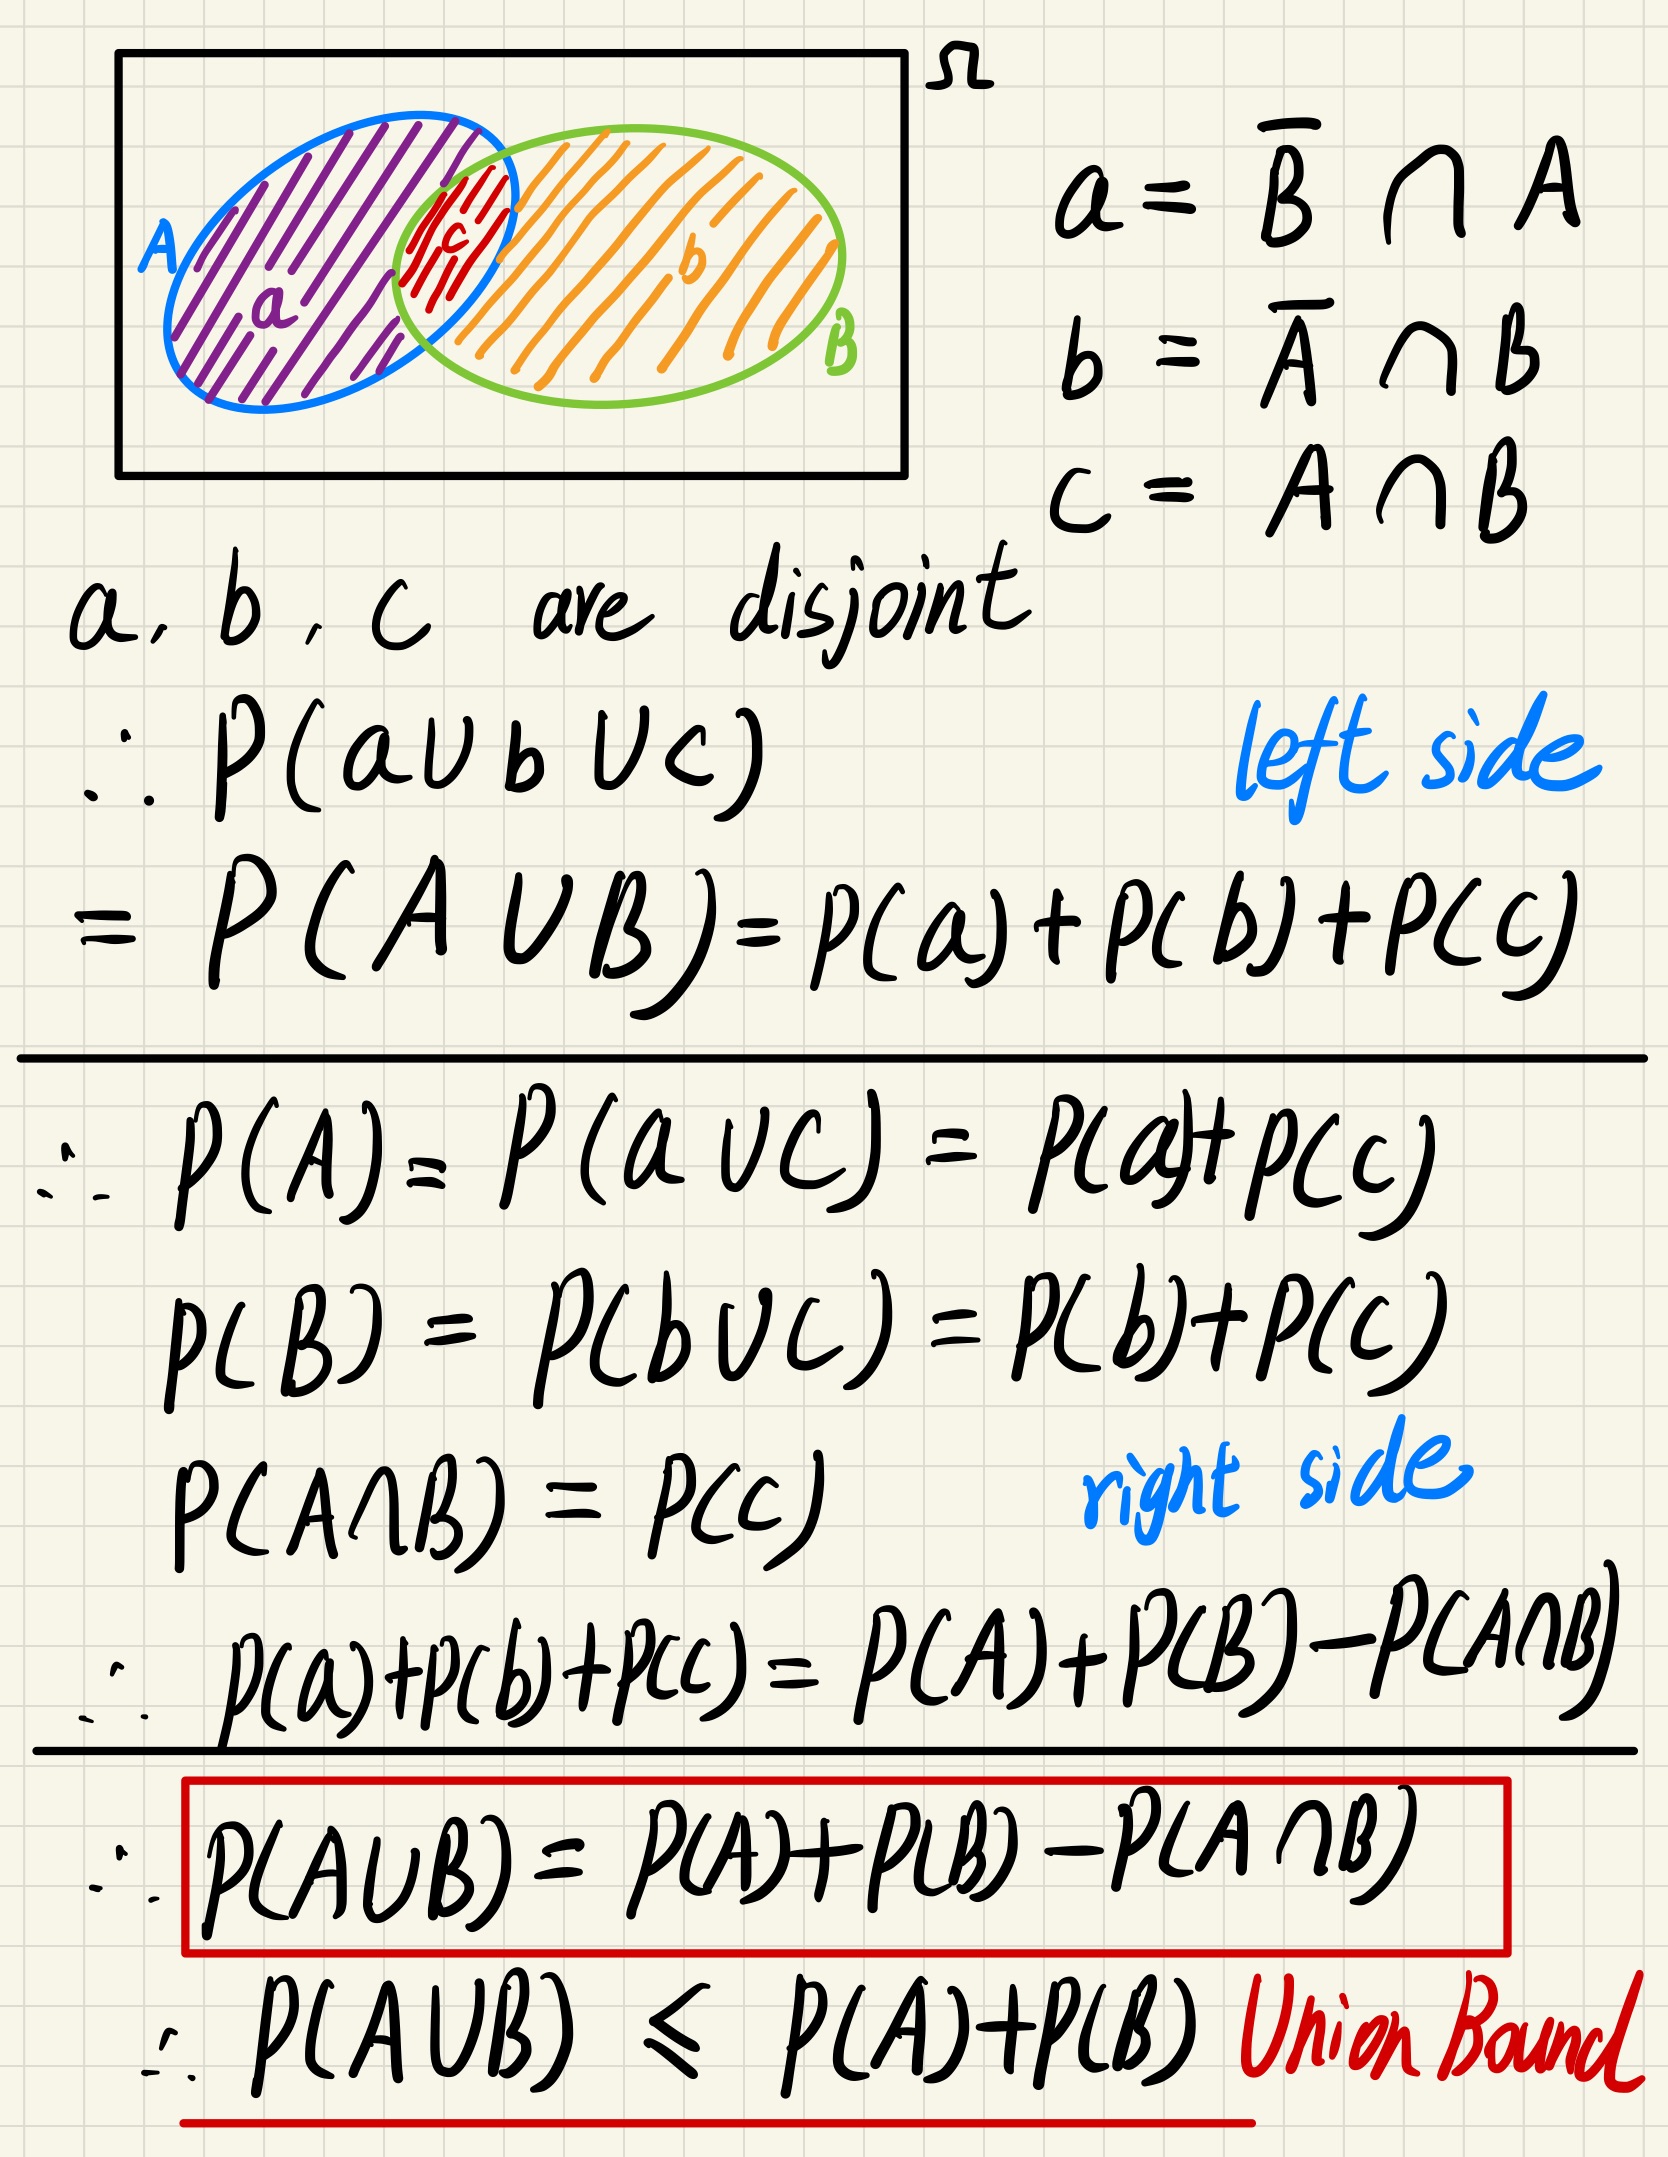 Ω
A
a
c
b
B
a = B̅ ∩ A
b = A̅ ∩ B
c = A ∩ B
a, b, c are disjoint
∴ P(a∪b∪c)
left side
= P(A∪B) = P(a)+P(b)+P(c)
∴ P(A) = P(a∪c) = P(a)+P(c)
P(B) = P(b∪c) = P(b)+P(c)
P(A∩B) = P(c)
right side
∴ P(a)+P(b)+P(c) = P(A)+P(B)-P(A∩B)
∴ P(A∪B) = P(A)+P(B)-P(A∩B)
∴ P(A∪B) ≤ P(A)+P(B) Union Bound